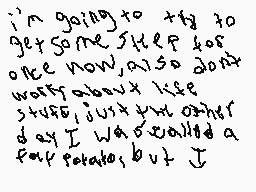 i'm going to try to
get some sleep for
once now, also don't
worry about life
stuff, just the other
day I was called a
fat potato, but I